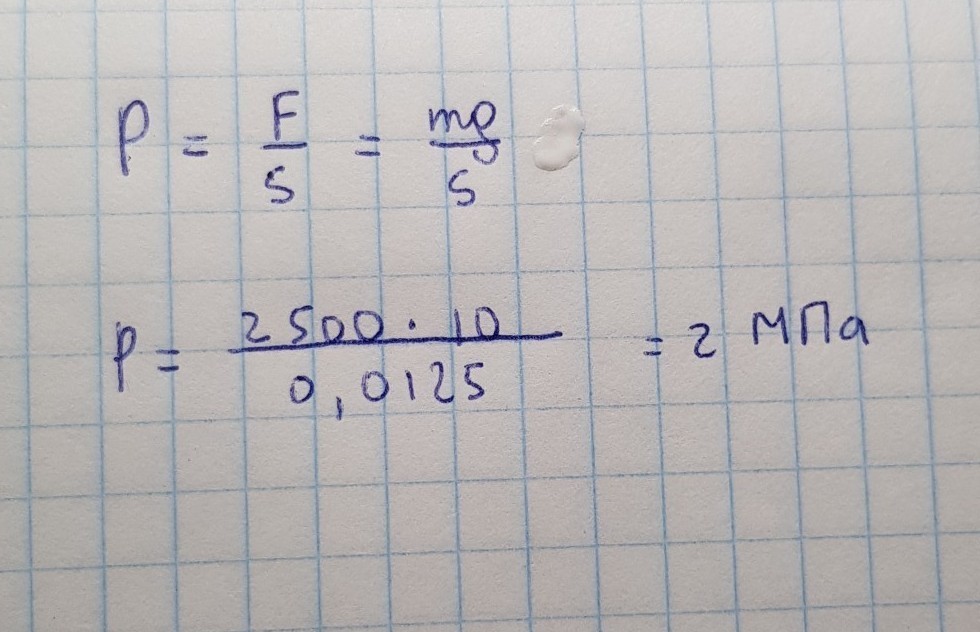 P = F/S = mg/S
P = 2500 · 10 / 0,0125 = 2 МПа